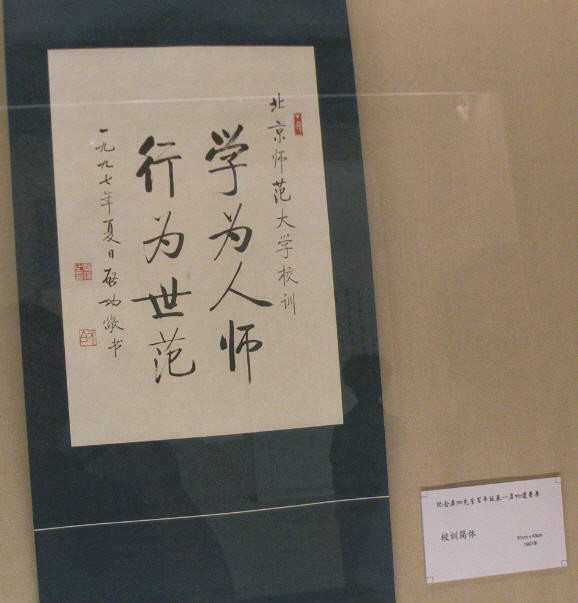 北京师范大学校训
学为人师
行为世范
一九九七年夏日启功敬书
纪念启功先生百年诞辰—启功遗墨展
校训简体
1997年